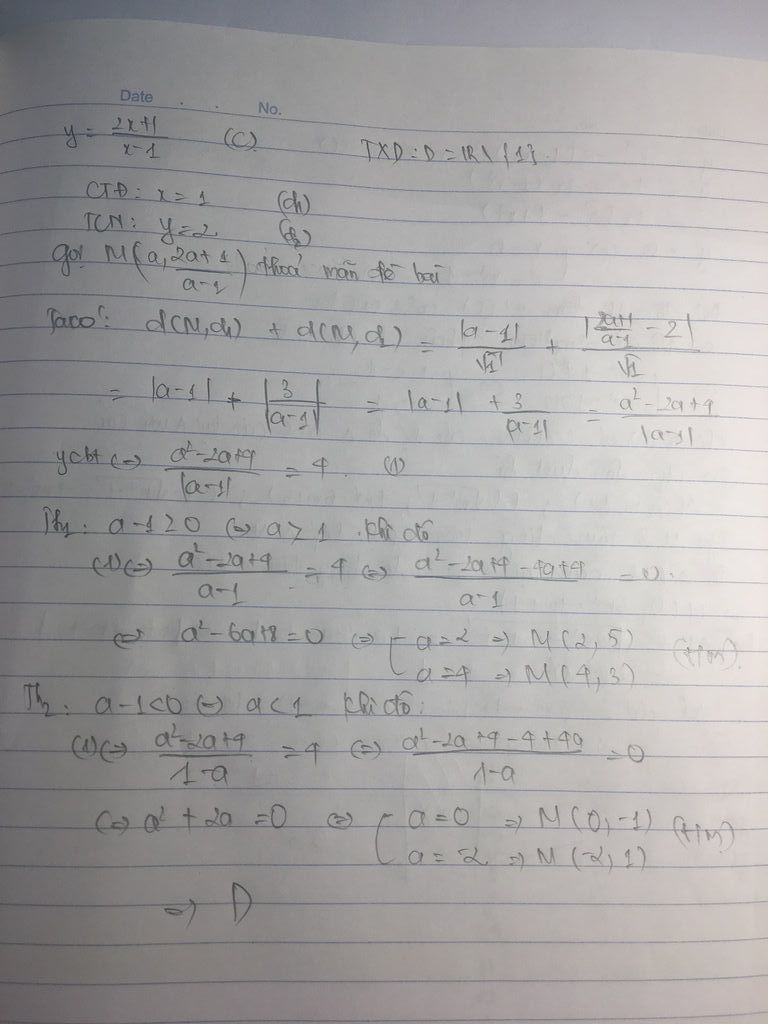 Date . . No.
y = \frac{2x+1}{x-1} (C) TXD: D = R \ {1}.
CTĐ: x = 1 (d₁)
TCN: y = 2 (d₂)
gọi M(a, \frac{2a+1}{a-1}) thoả mãn đề bài
Ta có: d(M,d₁) + d(M,d₂) = \frac{|a-1|}{√1} + \frac{|\frac{2a+1}{a-1} - 2|}{√1}
= |a-1| + \frac{|3|}{|a-1|} = |a-1| + \frac{3}{|a-1|} = \frac{a² - 2a + 4}{|a-1|}
ycbt ⇔ \frac{a² - 2a + 4}{|a-1|} = 4. (1)
Th₁: a - 1 > 0 ⇔ a > 1. khi đó
(1) ⇔ \frac{a² - 2a + 4}{a-1} = 4 ⇔ \frac{a² - 2a + 4 - 4a + 4}{a-1} = 0.
⇔ a² - 6a + 8 = 0 ⇔ [ a = 2 ⇒ M(2, 5)
a = 4 ⇒ M(4, 3) (t/m).
Th₂: a - 1 < 0 ⇔ a < 1 khi đó:
(1) ⇔ \frac{a² - 2a + 4}{1-a} = 4 ⇔ \frac{a² - 2a + 4 - 4 + 4a}{1-a} = 0
⇔ a² + 2a = 0 ⇔ [ a = 0 ⇒ M(0, -1) (t/m)
a = -2 ⇒ M(-2, 1)
⇒ D